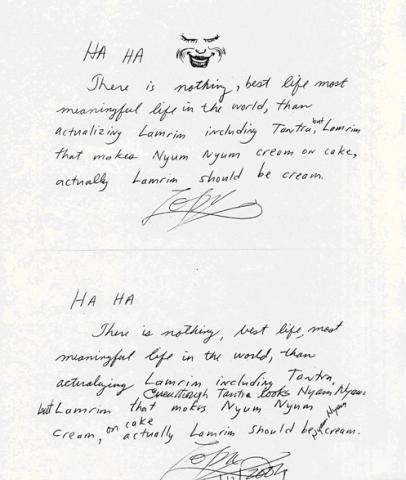 HA HA
There is nothing, best life most
meaningful life in the world, than
actualizing Lamrim including Tantra, but Lamrim
that makes Nyum Nyum cream on cake,
actually Lamrim should be cream.
HA HA
There is nothing, best life, most
meaningful life in the world, than
actualizing Lamrim including Tantra,
Eventhough Tantra looks Nyam Nyam
but Lamrim that makes Nyum Nyum
cream, on cake actually Lamrim should be cream.